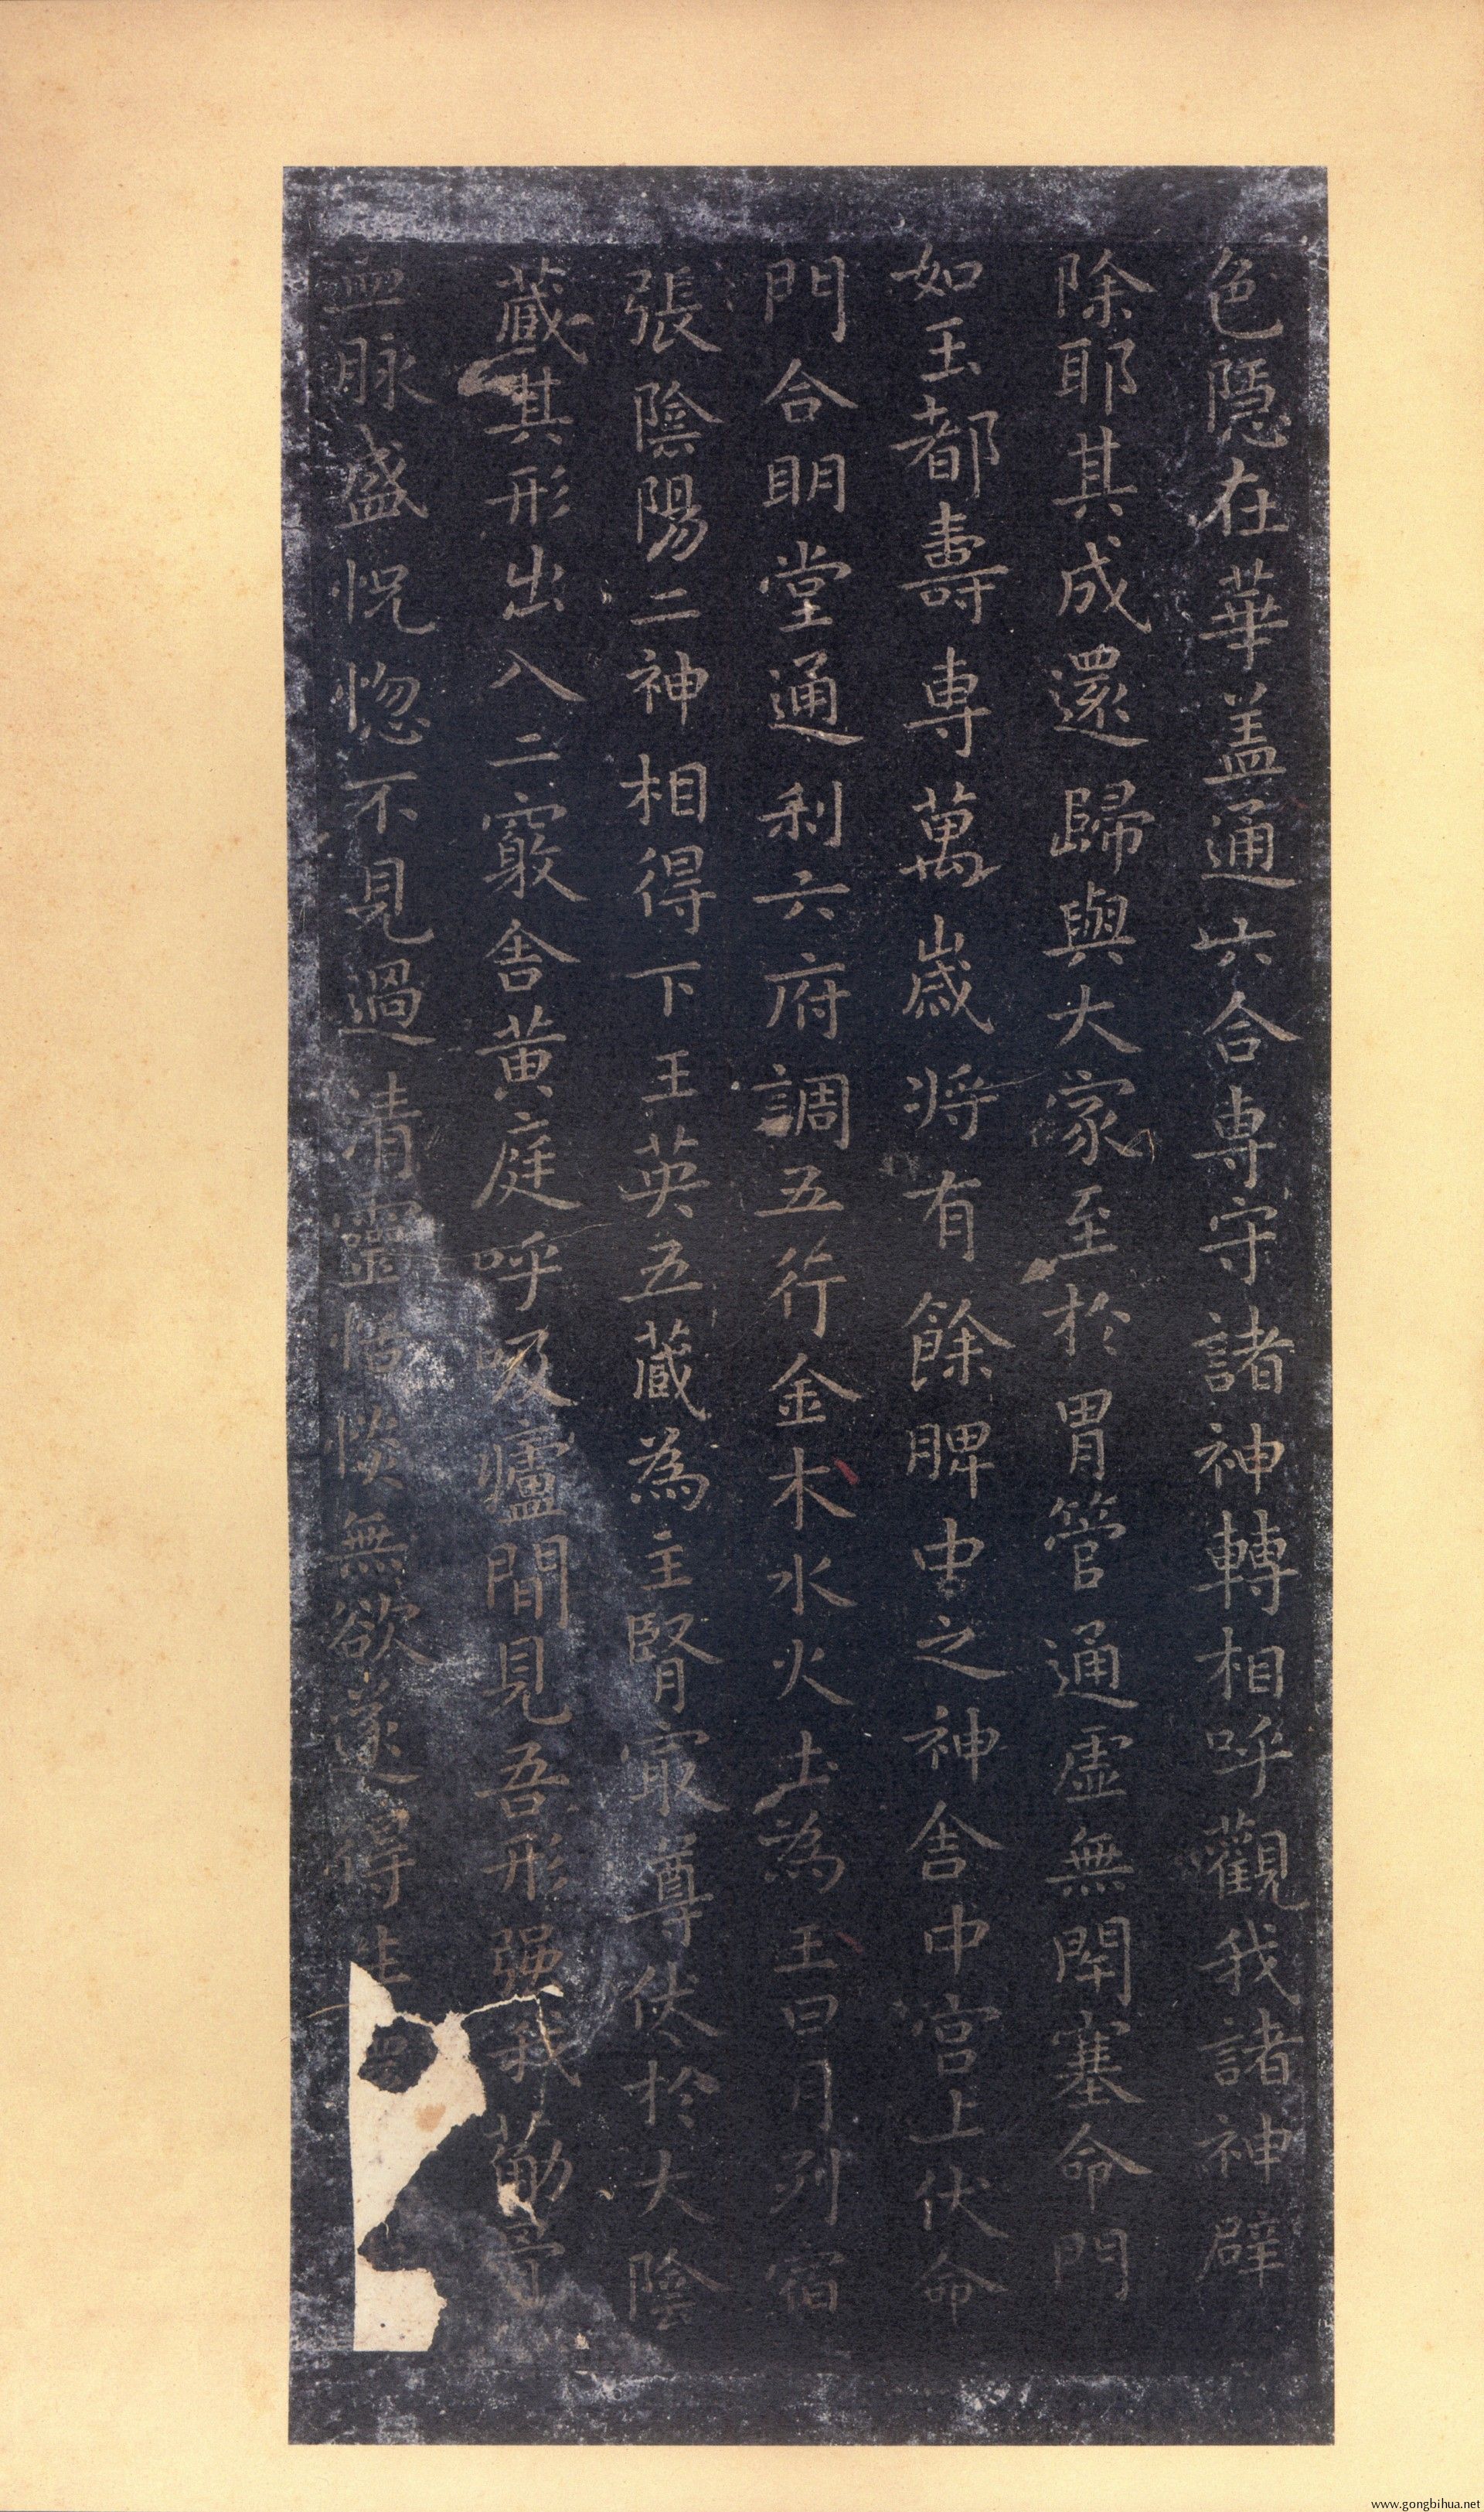 色隱在華盖通六合専守諸神轉相呼觀我諸神辟
除耶其成還歸與大家至於胃管通虛無閇塞命門
如玉都壽専萬歲将有餘脾中之神舎中宫上伏命
門合眀堂通利六府調五行金木水火土為王日月列宿
張陰陽二神相得下王英五蔵為主腎冣尊伏於大陰
蔵其形出入二竅舎黄庭呼吸廬間見吾形强我莭
血脉盛怳惚不見過清靈恬惔無欲遂得生
www.gongbihua.net